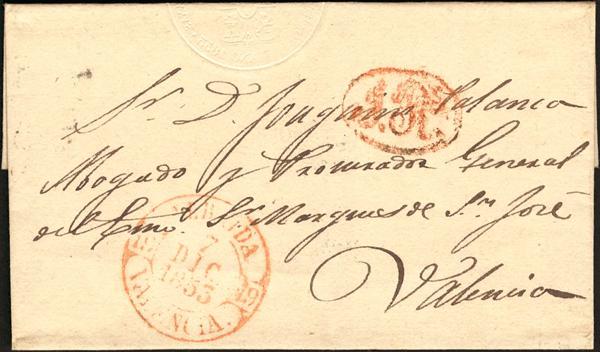 Sr. D. Joaquin Calanca
Abogado y Procurador General
del Emo. Sr. Marques de Sn. José
Valencia
7
DIC
1853
19 19
VALENCIA.